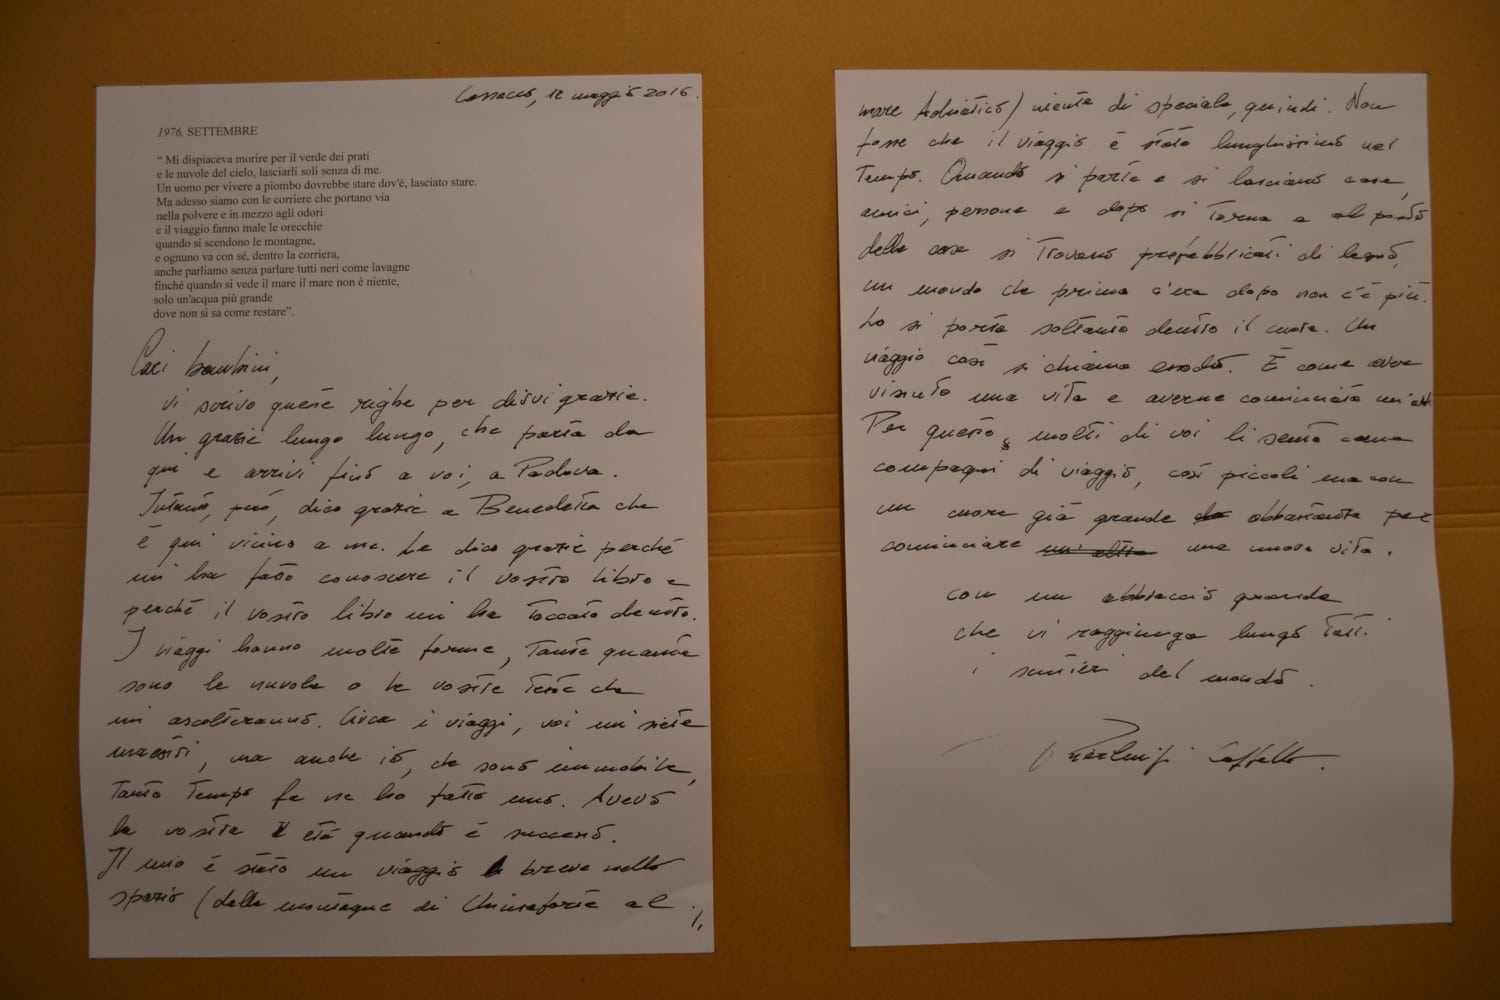 Cassacco, 12 maggio 2016.
1976. SETTEMBRE
“ Mi dispiaceva morire per il verde dei prati
e le nuvole del cielo, lasciarli soli senza di me.
Un uomo per vivere a piombo dovrebbe stare dov'è, lasciato stare.
Ma adesso siamo con le corriere che portano via
nella polvere e in mezzo agli odori
e il viaggio fanno male le orecchie
quando si scendono le montagne,
e ognuno va con sé, dentro la corriera,
anche parliamo senza parlare tutti neri come lavagne
finché quando si vede il mare il mare non è niente,
solo un'acqua più grande
dove non si sa come restare”.
Cari bambini,
vi scrivo queste righe per dirvi grazie.
Un grazie lungo lungo, che parta da
qui e arrivi fino a voi, a Padova.
Intanto, però, dico grazie a Benedetta che
è qui vicino a me. Le dico grazie perché
mi ha fatto conoscere il vostro libro e
perché il vostro libro mi ha toccato dentro.
I viaggi hanno molte forme, tante quante
sono le nuvole o le vostre teste che
mi ascolteranno. Circa i viaggi, voi mi siete
maestri, ma anche io, che sono immobile,
tanto tempo fa ne ho fatto uno. Avevo
la vostra età quando è successo.
Il mio è stato un viaggio breve nello
spazio (dalle montagne di Chiusaforte al
mare Adriatico) niente di speciale, quindi. Non
fosse che il viaggio è stato lunghissimo nel
tempo. Quando si parte e si lasciano case,
amici, persone e dopo si torna e al posto
delle case si trovano prefabbricati di legno,
un mondo che prima c'era dopo non c'è più.
Lo si porta soltanto dentro il cuore. Un
viaggio così si chiama esodo. È come aver
vissuto una vita e averne cominciata un'altra
Per questo, molti di voi li sento come
compagni di viaggio, così piccoli ma con
un cuore già grande abbastanza per
cominciare un'altra una nuova vita.
con un abbraccio grande
che vi raggiunga lungo tutti
i sentieri del mondo.
Pierluigi Cappello.